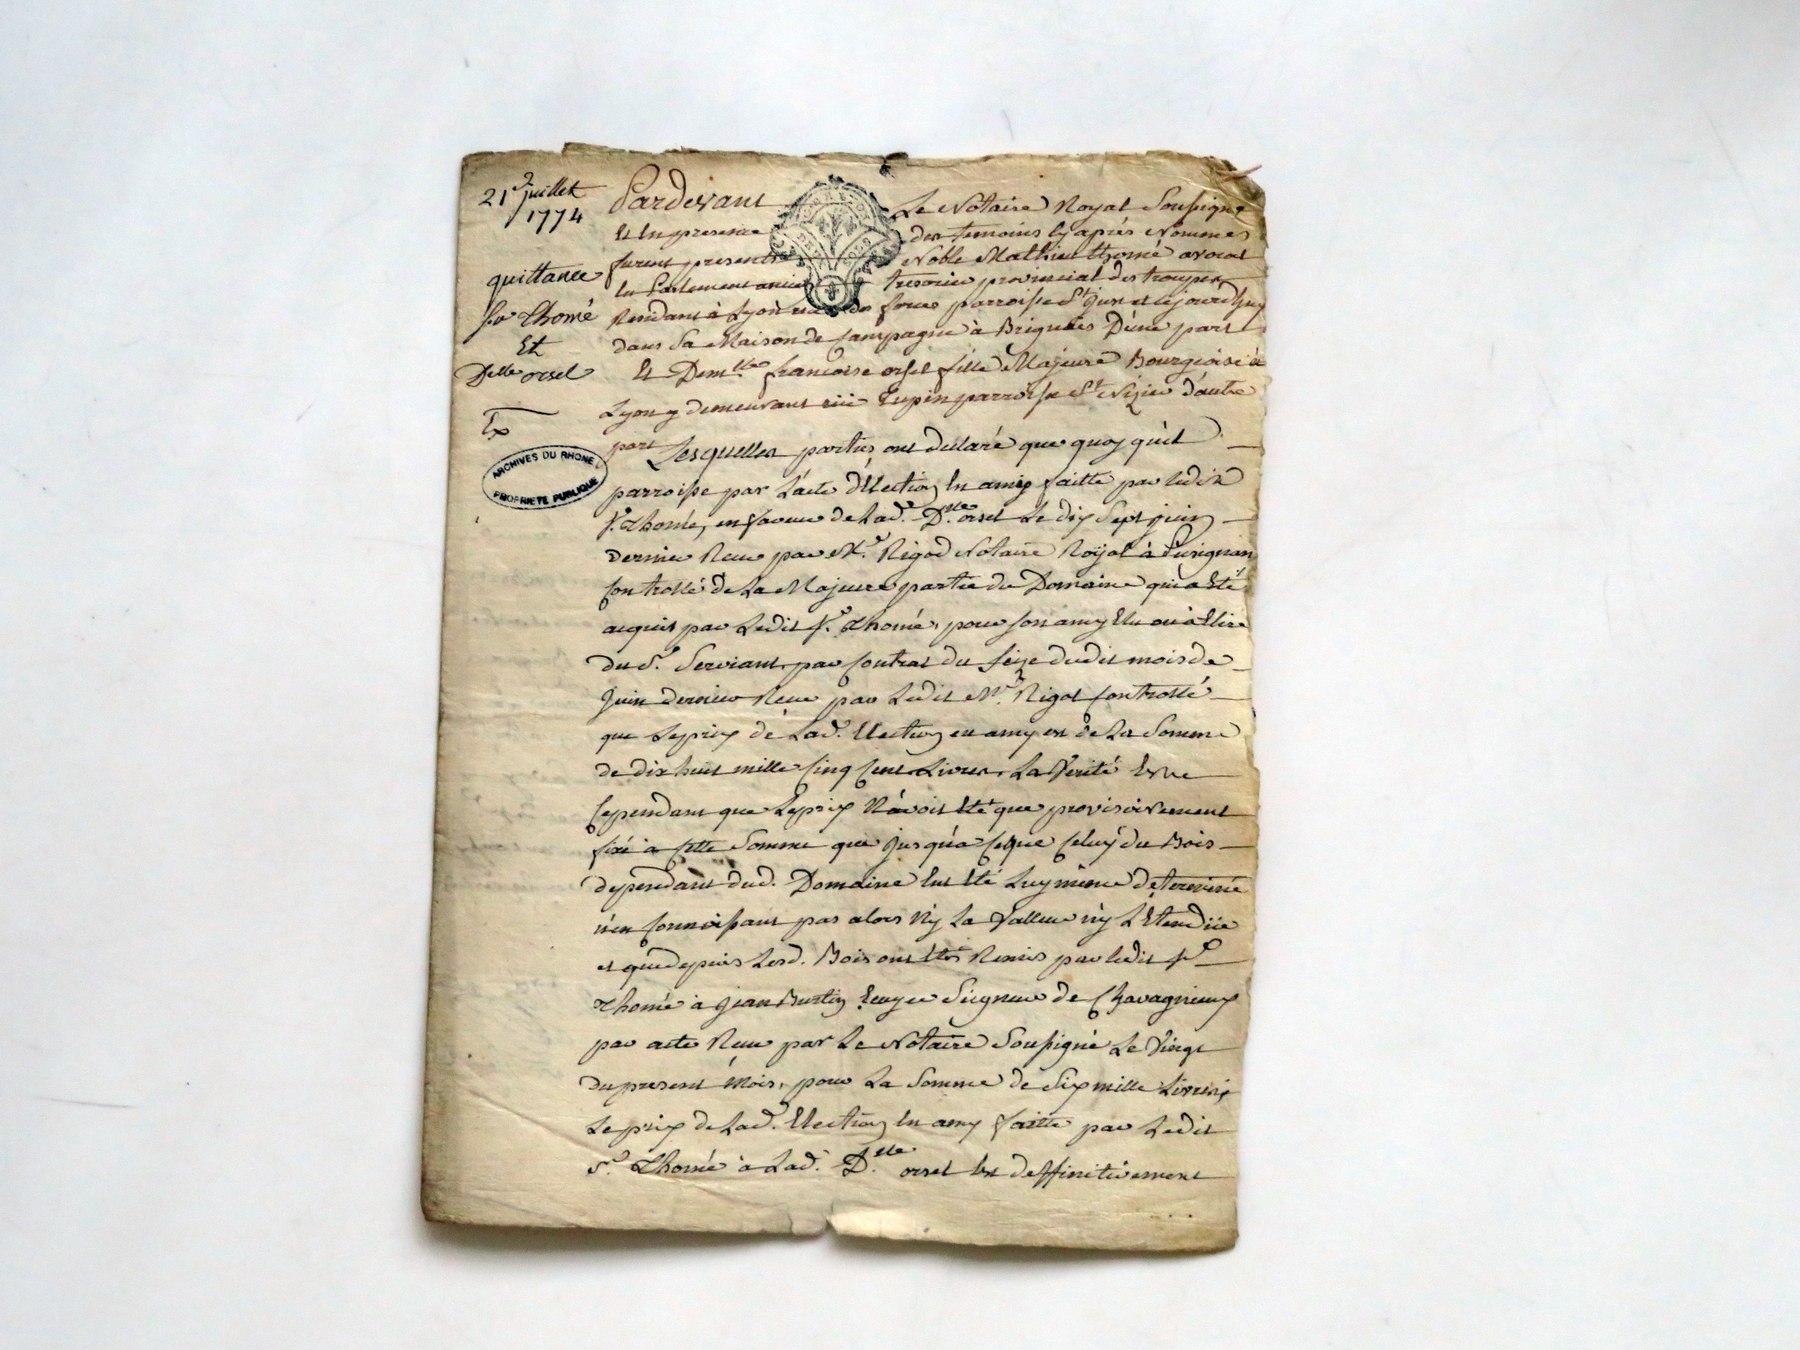 21 juillet
1774
quittance
sr Thomé
Et
Delle orsel
Ex
ARCHIVES DU RHONE
PROPRIETE PUBLIQUE
Pardevant Le Notaire Royal Soussigné
Et En presence des temoins Cy après Nommés
furent presents Noble Mathieu thomé avocat
En Parlement ancien tresorier provincial des troupes
Residant à Lyon rüe des forces parroisse St Just et cejourd'huy
dans Sa Maison de Campagne à Brignais D'une part
Et Demlle francoise orsel fille Majeure Bourgeoise à
Lyon y demeurant rüe Tupin parroisse St Nizier d'autre
part Lesquelles parties ont déclaré que quoy qu'il
parroisse par L'acte d'Election En amy faitte par ledit
Sr. Thomé, en faveur de Lad. Dlle. orsel Le dix Sept juin
dernier Reçu par Me. Rigod Notaire Royal à
Controllé de La Majeure partie du Domaine qui a Eté
acquis par Ledit Sr. Thomé, pour son amy Elu ou à Elire
du Sr. Serviant, par Contrat du seize dudit mois de
Juin dernier Reçu par Ledit Me. Rigod Controllé
que Leprix de Lad. Election en amy est de La Somme
de dix huit mille Cinq Cent Livres, La Verité Est
Cependant que Leprix N'avoit Eté que provisoirement
fixé à Cette Somme que jusqu'a Ceque Celuy du Bois
dependant dud. Domaine Eut Eté Luy même déterminé
n'en Connoissant pas alors Ny La Valleur ny L'Etendüe
et que depuis Lesd. Bois ont Etés Remis par ledit Sr
Thomé à Jean Burtin Ecuyer Seigneur de Chavagnieux
par acte Reçu par Le Notaire Soussigné Le Vingt
du present Mois, pour La Somme de Six mille Livres
Le prix de Lad. Election En amy faitte par Ledit
Sr. Thomé à Lad. Dlle. orsel Est deffinitivement